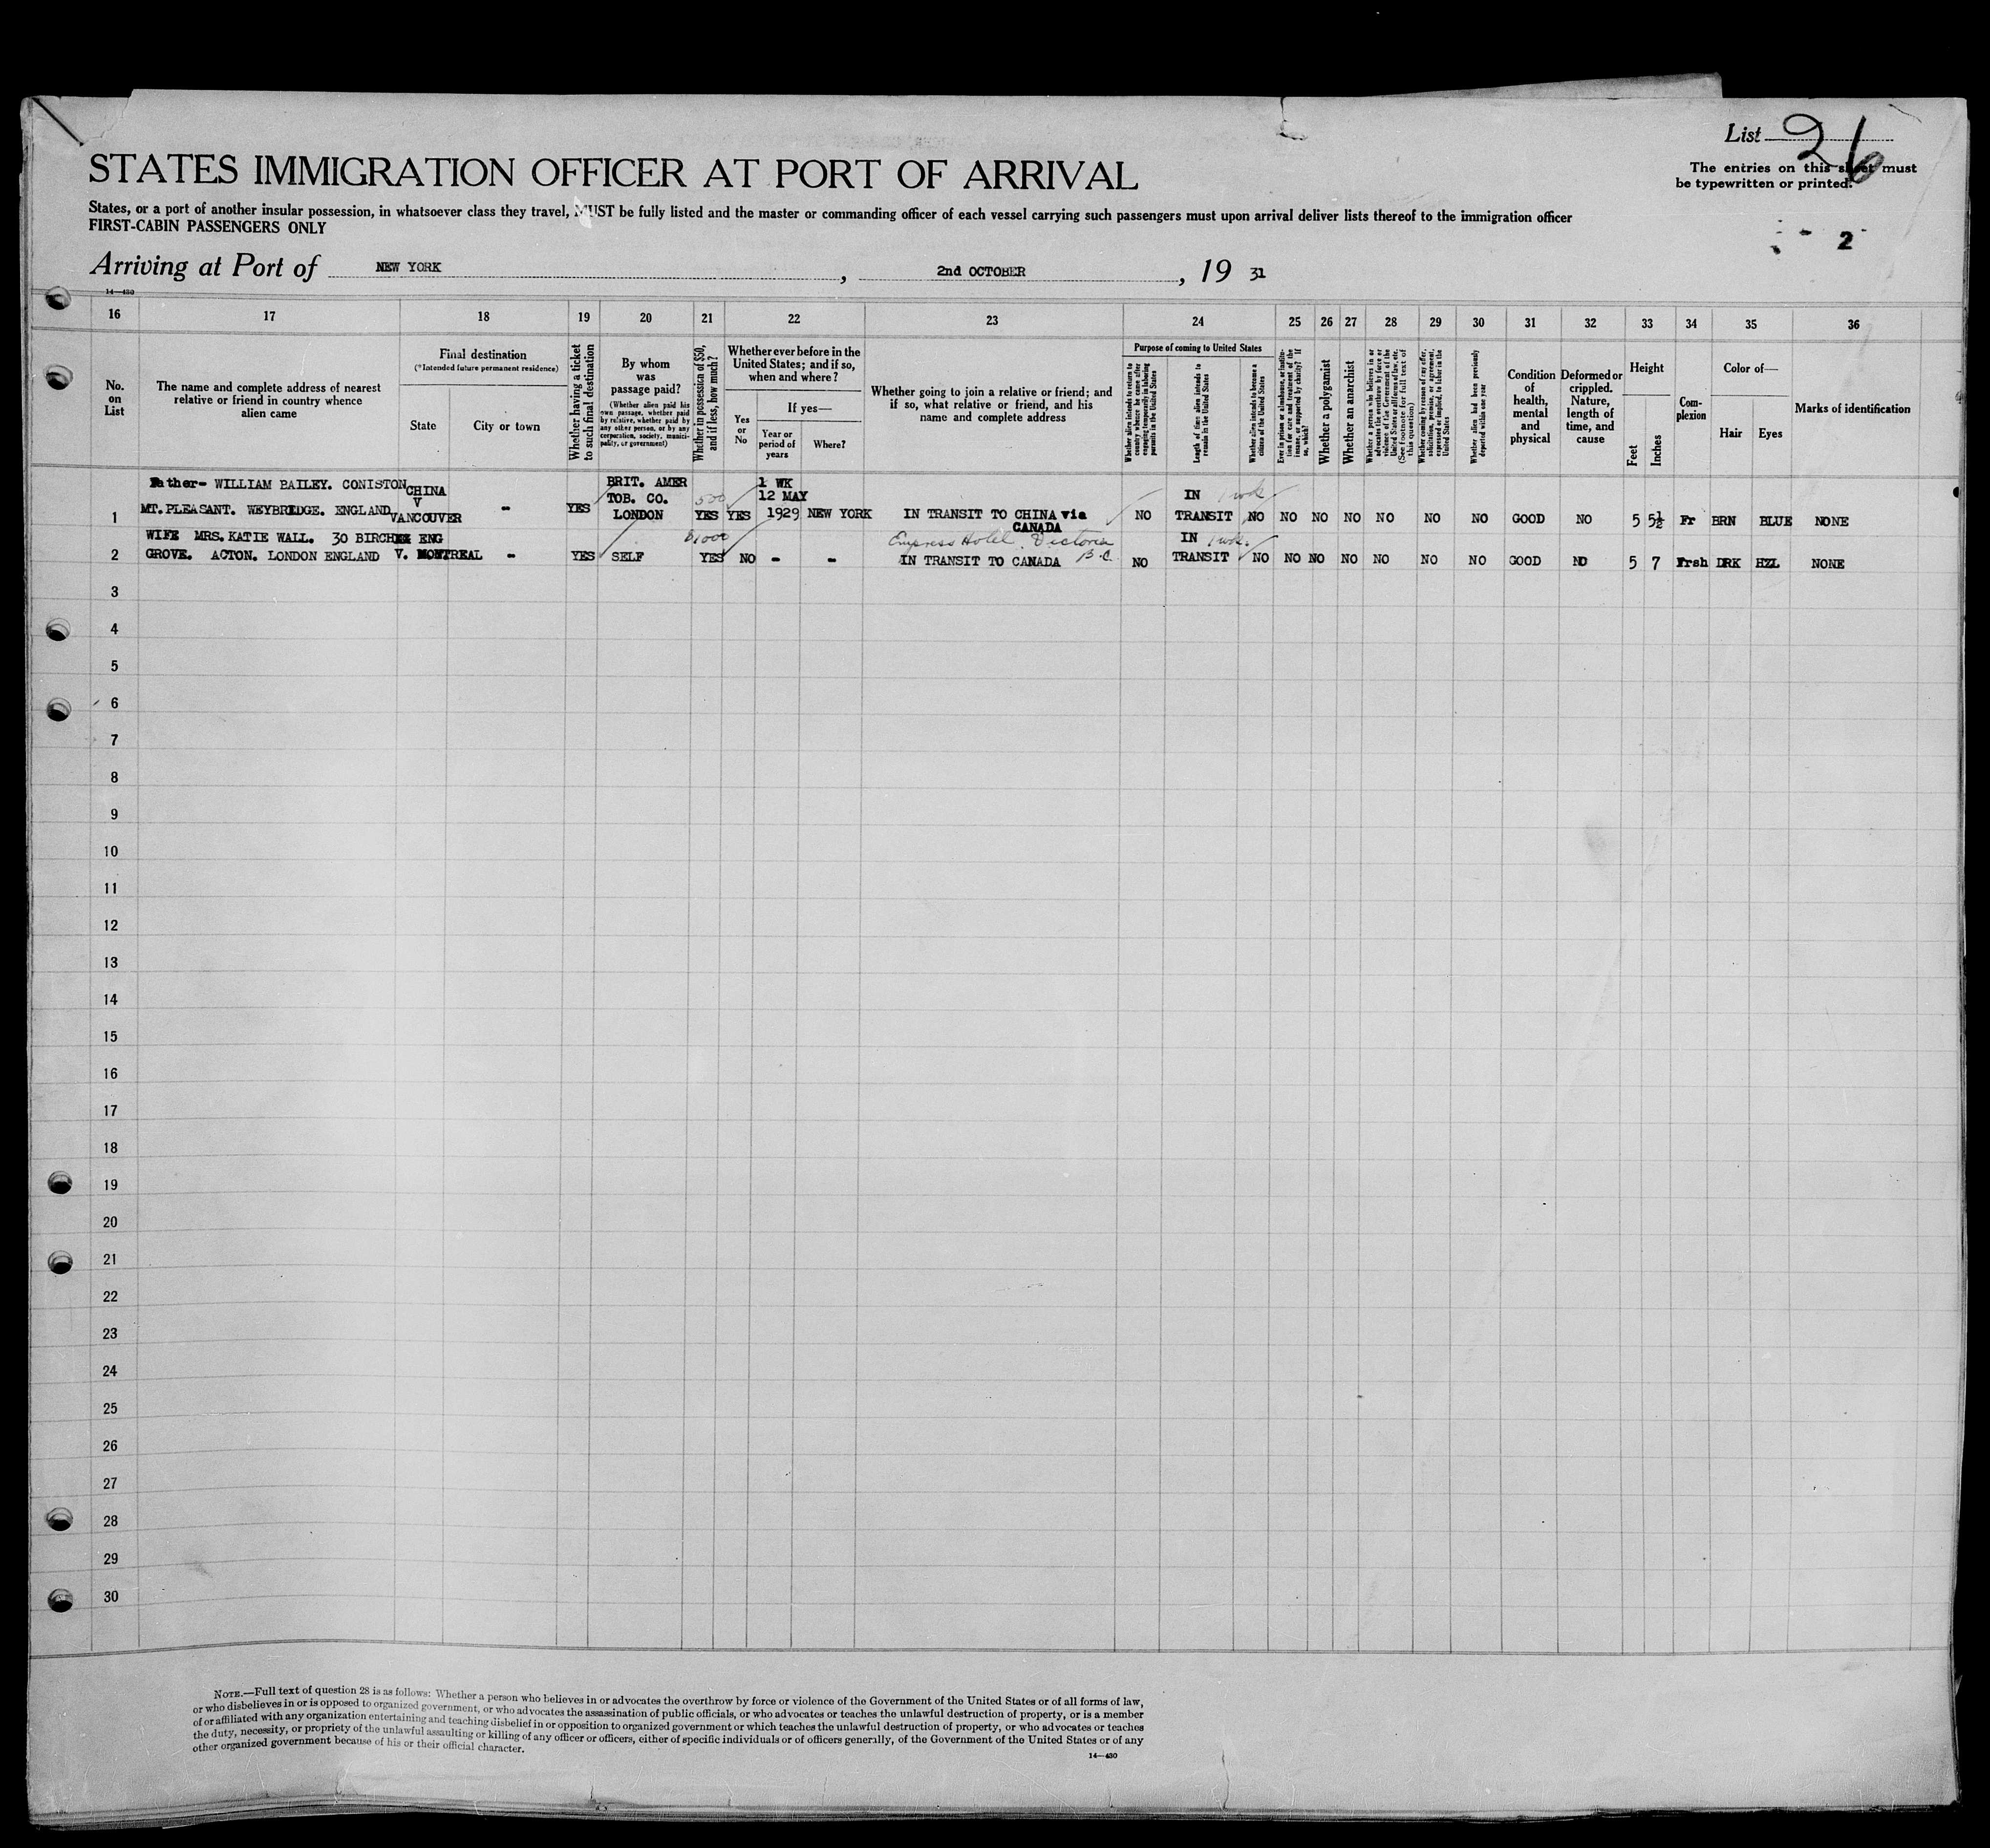 List 26
STATES IMMIGRATION OFFICER AT PORT OF ARRIVAL
The entries on this sheet must
be typewritten or printed.
States, or a port of another insular possession, in whatsoever class they travel, MUST be fully listed and the master or commanding officer of each vessel carrying such passengers must upon arrival deliver lists thereof to the immigration officer
FIRST-CABIN PASSENGERS ONLY
2
Arriving at Port of NEW YORK , 2nd OCTOBER , 19 31
14—430
16 17 18 19 20 21 22 23 24 25 26 27 28 29 30 31 32 33 34 35 36
No. on List
The name and complete address of nearest
relative or friend in country whence
alien came
Final destination
(*Intended future permanent residence)
State City or town
Whether having a ticket
to such final destination
By whom
was
passage paid?
(Whether alien paid his
own passage, whether paid
by relative, whether paid by
any other person, or by any
corporation, society, munici-
pality, or government)
Whether in possession of $50,
and if less, how much?
Whether ever before in the
United States; and if so,
when and where?
Yes or No
If yes—
Year or
period of
years
Where?
Whether going to join a relative or friend; and
if so, what relative or friend, and his
name and complete address
Purpose of coming to United States
Whether alien intends to return to
country whence he came after
engaging temporarily in laboring
pursuits in the United States
Length of time alien intends to
remain in the United States
Whether alien intends to become a
citizen of the United States
Ever in prison or almshouse, or institu-
tion for care and treatment of the
insane, or supported by charity? If
so, which?
Whether a polygamist
Whether an anarchist
Whether a person who believes in or
advocates the overthrow by force or
violence of the Government of the
United States or all forms of law, etc.
(See footnote for full text of
this question)
Whether coming by reason of any offer,
solicitation, promise, or agreement,
expressed or implied, to labor in the
United States
Whether alien had been previously
deported within one year
Condition
of
health,
mental
and
physical
Deformed or
crippled.
Nature,
length of
time, and
cause
Height
Feet Inches
Com-
plexion
Color of—
Hair Eyes
Marks of identification
Father- WILLIAM BAILEY. CONISTON CHINA BRIT. AMER 1 WK
V TOB. CO. 500 12 MAY IN 1 wk
1 MT. PLEASANT. WEYBRIDGE. ENGLAND VANCOUVER - YES LONDON YES YES 1929 NEW YORK IN TRANSIT TO CHINA via NO TRANSIT NO NO NO NO NO NO NO GOOD NO 5 5½ Fr BRN BLUE NONE
CANADA
WIFE MRS. KATIE WALL. 30 BIRCH ENG $1000 Empress Hotel. Victoria IN 1 wk.
2 GROVE. ACTON. LONDON ENGLAND V. MONTREAL - YES SELF YES NO - - IN TRANSIT TO CANADA B.C. NO TRANSIT NO NO NO NO NO NO NO GOOD NO 5 7 Frsh DRK HZL NONE
3
4
5
6
7
8
9
10
11
12
13
14
15
16
17
18
19
20
21
22
23
24
25
26
27
28
29
30
NOTE.—Full text of question 28 is as follows: Whether a person who believes in or advocates the overthrow by force or violence of the Government of the United States or of all forms of law,
or who disbelieves in or is opposed to organized government, or who advocates the assassination of public officials, or who advocates or teaches the unlawful destruction of property, or is a member
of or affiliated with any organization entertaining and teaching disbelief in or opposition to organized government or which teaches the unlawful destruction of property, or who advocates or teaches
the duty, necessity, or propriety of the unlawful assaulting or killing of any officer or officers, either of specific individuals or of officers generally, of the Government of the United States or of any
other organized government because of his or their official character.
14—430